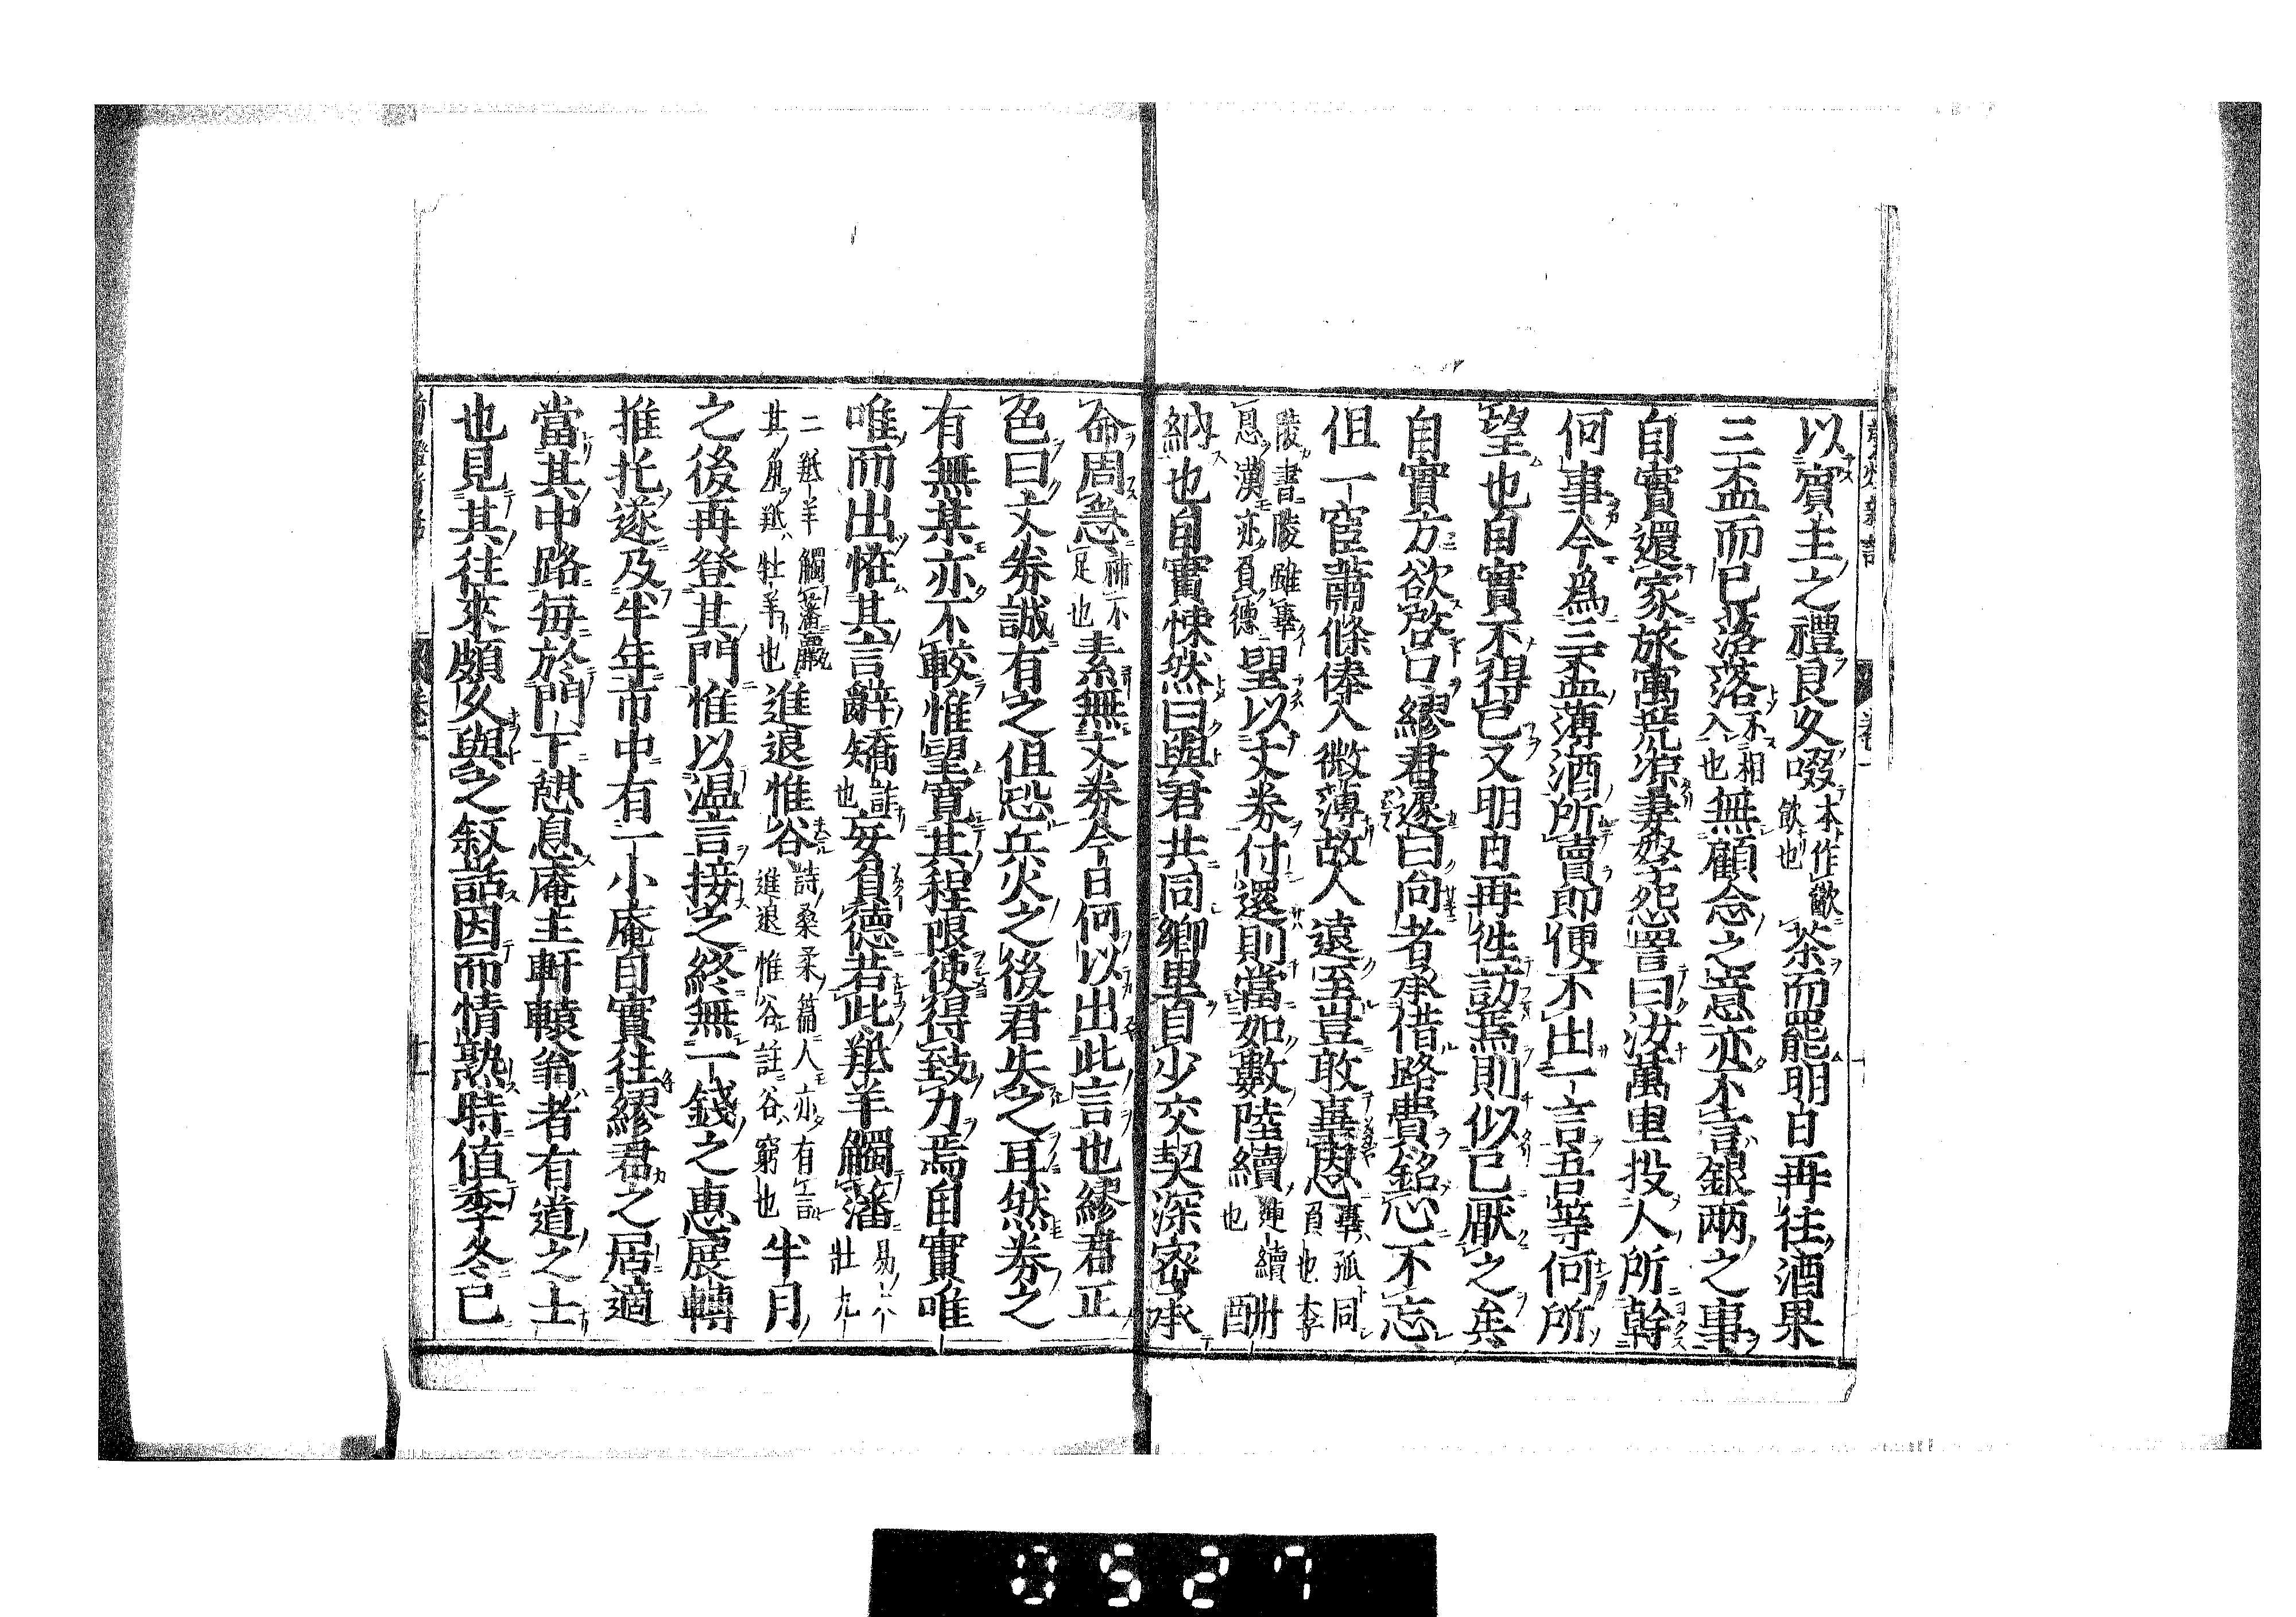 以賓主之禮良久啜本作歠飲也茶而罷明日再往酒果
三盃而已落落不相入也無顧念之意亦不言銀兩之事
自實還家旅寓荒凉妻孥怨詈曰汝萬里投人所幹
何事今爲三盃薄酒所賣即便不出一言吾等何所
望也自實不得已又明日再徃訪焉則似已厭之矣
自實方欲啓口繆君遽曰向者承借路費銘心不忘
但一宦蕭條俸入微薄故人遠至豈敢辜恩辜孤同負也李
陵書陵雖辜恩漢亦負德望以文券付還則當如數陸續連續也酬
納也自實悚然曰與君共同鄉里自少交契深密承
命周急補不足也素無文券今日何以出此言也繆君正
色曰文券誠有之但恐兵火之後君失之耳然券之
有無某亦不較惟望寬其程限使得致力焉自實唯
唯而出恠其言辭矯詐也妄負德若此羝羊觸藩易大壯九
二羝羊觸藩羸其角羝牡羊也進退惟谷詩桑柔篇人亦有言進退惟谷註谷窮也半月
之後再登其門惟以温言接之終無一錢之惠展轉
推托遂及半年市中有一小庵自實往繆君之居適
當其中路每於門下憩息庵主軒轅翁者有道之士
也見其往來頗久與之叙話因而情熟時值季冬已
0527